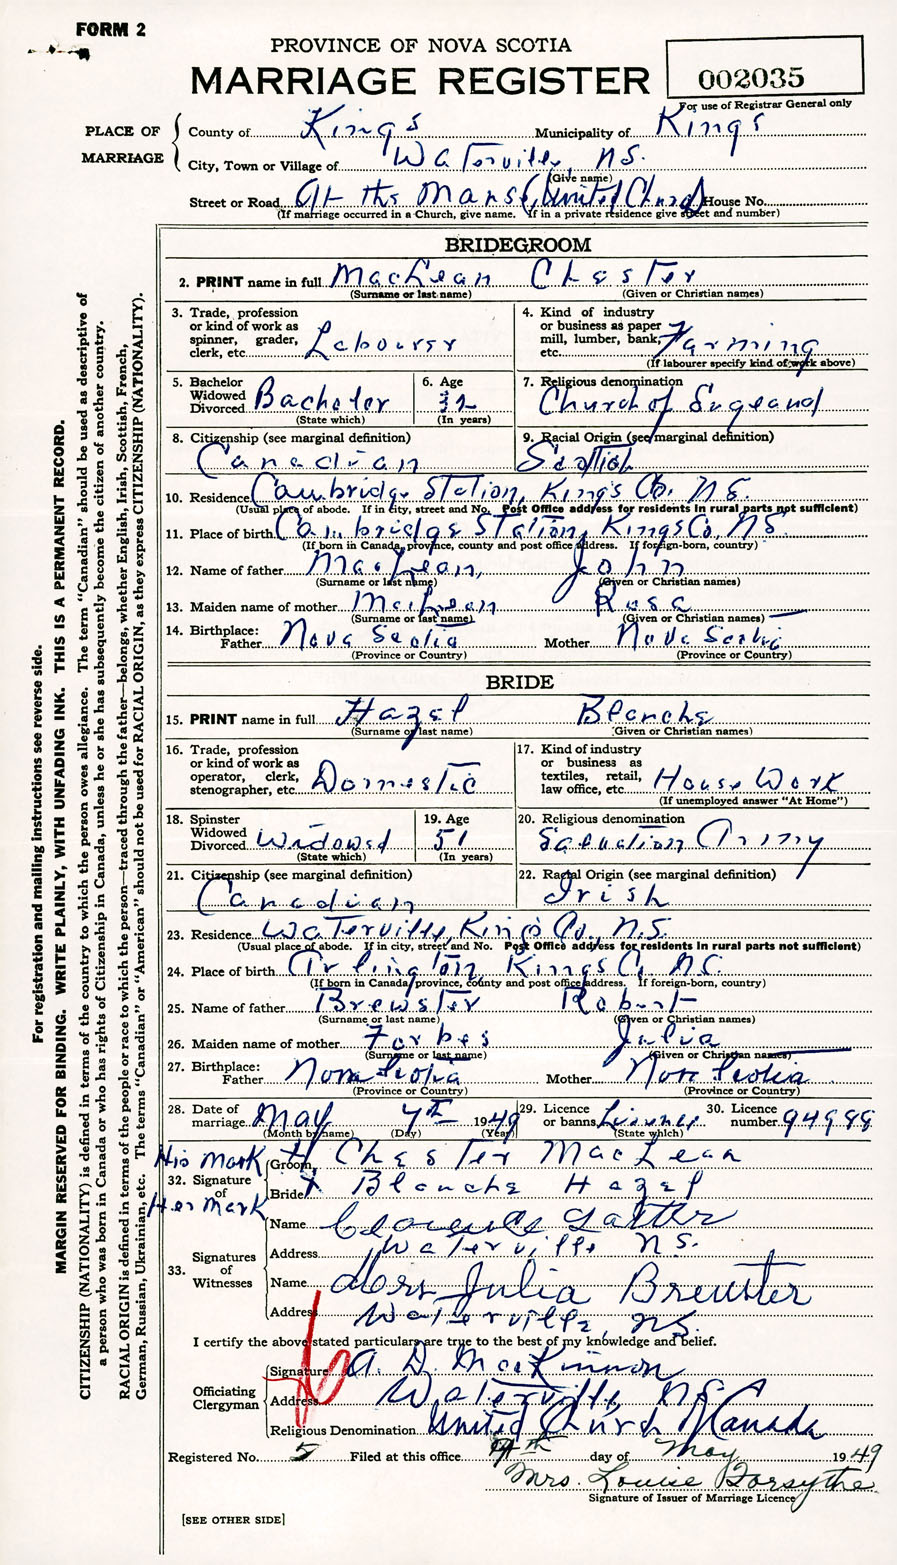 FORM 2
PROVINCE OF NOVA SCOTIA
MARRIAGE REGISTER
002035
For use of Registrar General only
PLACE OF MARRIAGE
County of Kings Municipality of Kings
City, Town or Village of Waterville, N.S.
(Give name)
Street or Road At the Manse (United Church) House No.
(If marriage occurred in a Church, give name. If in a private residence give street and number)
BRIDEGROOM
2. PRINT name in full MacLean Chester
(Surname or last name) (Given or Christian names)
3. Trade, profession or kind of work as spinner, grader, clerk, etc. Labourer
4. Kind of industry or business as paper mill, lumber, bank, etc. Farming
(If labourer specify kind of work above)
5. Bachelor Widowed Divorced Bachelor
(State which)
6. Age 32
(In years)
7. Religious denomination
Church of England
8. Citizenship (see marginal definition)
Canadian
9. Racial Origin (see marginal definition)
Scottish
10. Residence Cambridge Station, King's Co. N.S.
(Usual place of abode. If in city, street and No. Post Office address for residents in rural parts not sufficient)
11. Place of birth Cambridge Station, Kings Co, N.S.
(If born in Canada, province, county and post office address. If foreign-born, country)
12. Name of father MacLean, John
(Surname or last name) (Given or Christian names)
13. Maiden name of mother MacLean Rosa
(Surname or last name) (Given or Christian names)
14. Birthplace:
Father Nova Scotia Mother Nova Scotia
(Province or Country) (Province or Country)
BRIDE
15. PRINT name in full Hazel Blanche
(Surname or last name) (Given or Christian names)
16. Trade, profession or kind of work as operator, clerk, stenographer, etc. Domestic
17. Kind of industry or business as textiles, retail, law office, etc. House Work
(If unemployed answer "At Home")
18. Spinster Widowed Divorced Widowed
(State which)
19. Age 51
(In years)
20. Religious denomination
Salvation Army
21. Citizenship (see marginal definition)
Canadian
22. Racial Origin (see marginal definition)
Irish
23. Residence Waterville, King's Co., N.S.
(Usual place of abode. If in city, street and No. Post Office address for residents in rural parts not sufficient)
24. Place of birth Arlington, Kings C. N.S.
(If born in Canada, province, county and post office address. If foreign-born, country)
25. Name of father Brewster Robert
(Surname or last name) (Given or Christian names)
26. Maiden name of mother Forbes Julia
(Surname or last name) (Given or Christian names)
27. Birthplace:
Father Nova Scotia Mother Nova Scotia
(Province or Country) (Province or Country)
28. Date of marriage May 7th 1949
(Month by name) (Day) (Year)
29. Licence or banns License
(State which)
30. Licence number 94988
His Mark
32. Signature of
Groom Chester MacLean
Bride X Blanche Hazel
Her Mark
33. Signatures of Witnesses
Name
Address Waterville N.S.
Name Mrs Julia Brewster
Address Waterville, N.S
I certify the above stated particulars are true to the best of my knowledge and belief.
Officiating Clergyman
Signature A. D. MacKinnon
Address Waterville, N.S.
Religious Denomination United Church of Canada
Registered No. 5 Filed at this office 9th day of May 1949
Mrs. Louise Forsythe
Signature of Issuer of Marriage Licence
[SEE OTHER SIDE]
For registration and mailing instructions see reverse side.
MARGIN RESERVED FOR BINDING. WRITE PLAINLY, WITH UNFADING INK. THIS IS A PERMANENT RECORD.
CITIZENSHIP (NATIONALITY) is defined in terms of the country to which the person owes allegiance. The term "Canadian" should be used as descriptive of
a person who was born in Canada or who has rights of Citizenship in Canada, unless he or she has subsequently become the citizen of another country.
RACIAL ORIGIN is defined in terms of the people or race to which the person—traced through the father—belongs, whether English, Irish, Scottish, French,
German, Russian, Ukrainian, etc. The terms "Canadian" or "American" should not be used for RACIAL ORIGIN, as they express CITIZENSHIP (NATIONALITY).